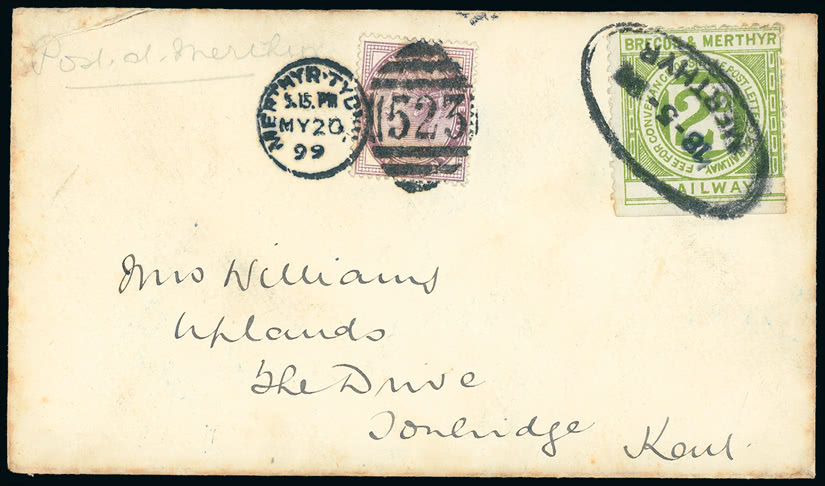 Post. at. Merthyr
MERTHYR·TYDFIL
5.15.PM
MY 20
99
523
BRECON & MERTHYR
FEE FOR CONVEYANCE OF SINGLE POST LETTERS BY RAILWAY
2
RAILWAY
MERTHYR
Mrs Williams
Uplands
The Drive
Tonbridge
Kent.